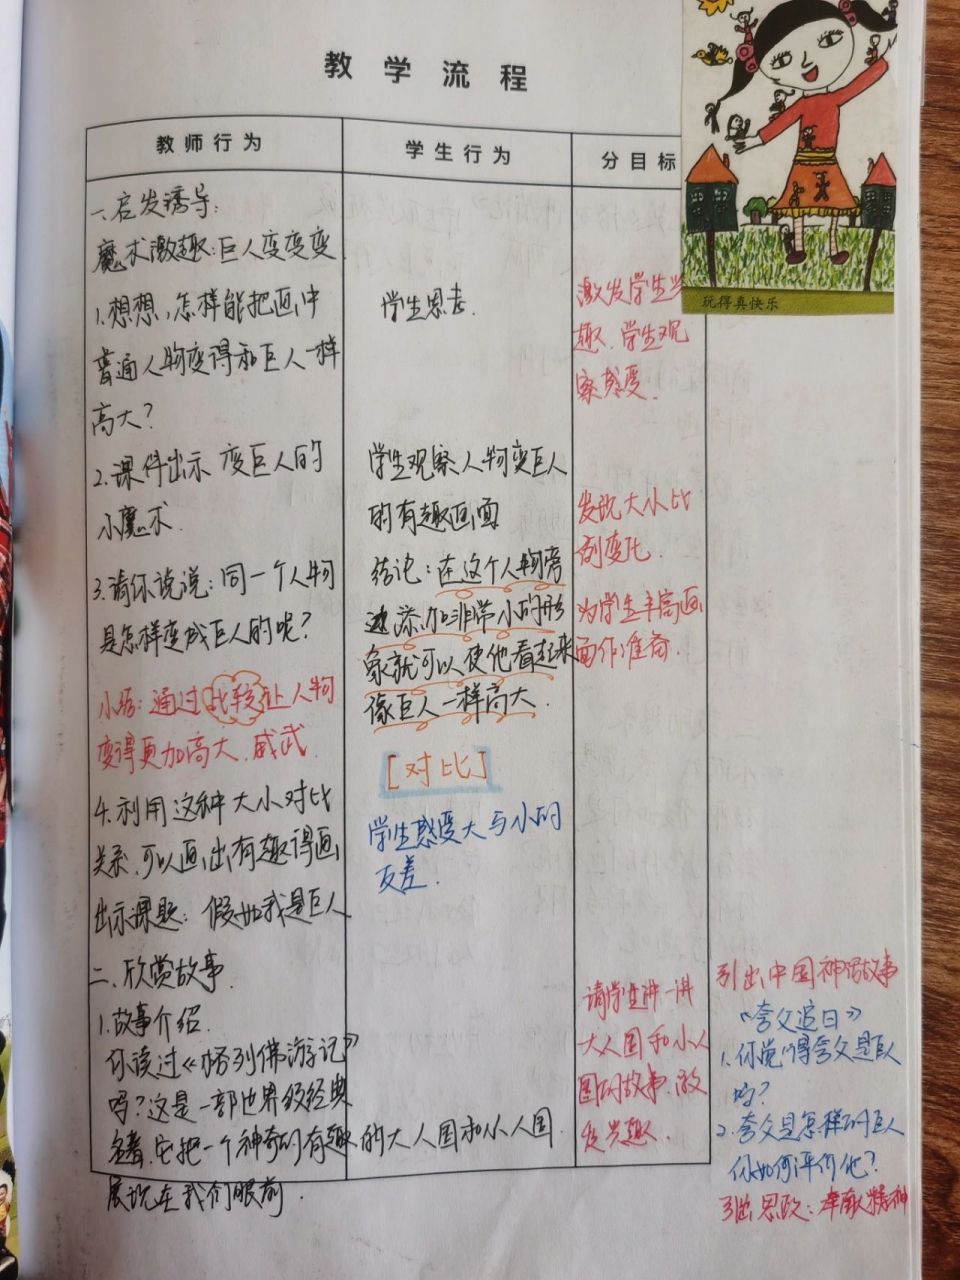 教学流程
教师行为
学生行为
分目标
一.启发诱导:
魔术激趣:巨人变变变
1.想想,怎样能把画中
普通人物变得和巨人一样
高大?
2.课件出示 变巨人的
小魔术.
3.请你说说:同一个人物
是怎样变成巨人的呢?
小结:通过比较让人物
变得更加高大.威武.
4.利用这种大小对比
关系.可以画出有趣得画
出示课题: 假如我是巨人
二.欣赏故事.
1.故事介绍.
你读过《格列佛游记》
吗?这是一部世界级经典
名著.它把一个神奇的有趣的大人国和小人国
展现在我们眼前.
学生思考.
学生观察人物变巨人
的有趣画面
结论:在这个人物旁
边添加非常小的形
象就可以使他看起来
像巨人一样高大.
[对比]
学生感受大与小的
反差.
激发学生
趣.学生观
察感受.
发现大小比
例变化.
为学生丰富画
面作准备.
请学生讲一讲
大人国和小人
国的故事.激
发兴趣.
玩得真快乐
引出中国神话故事
《夸父追日》
1.你觉得夸父是巨人
吗?
2.夸父是怎样的巨人
你如何评价他?
引出思政:奉献精神